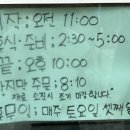 시작: 오전 11:00
중식·준비: 2:30~5:00
끝: 오후 10:00
마지막 주문: 8:10
재료 소진시 조기 마감 합니다.
매주 토요일 셋째